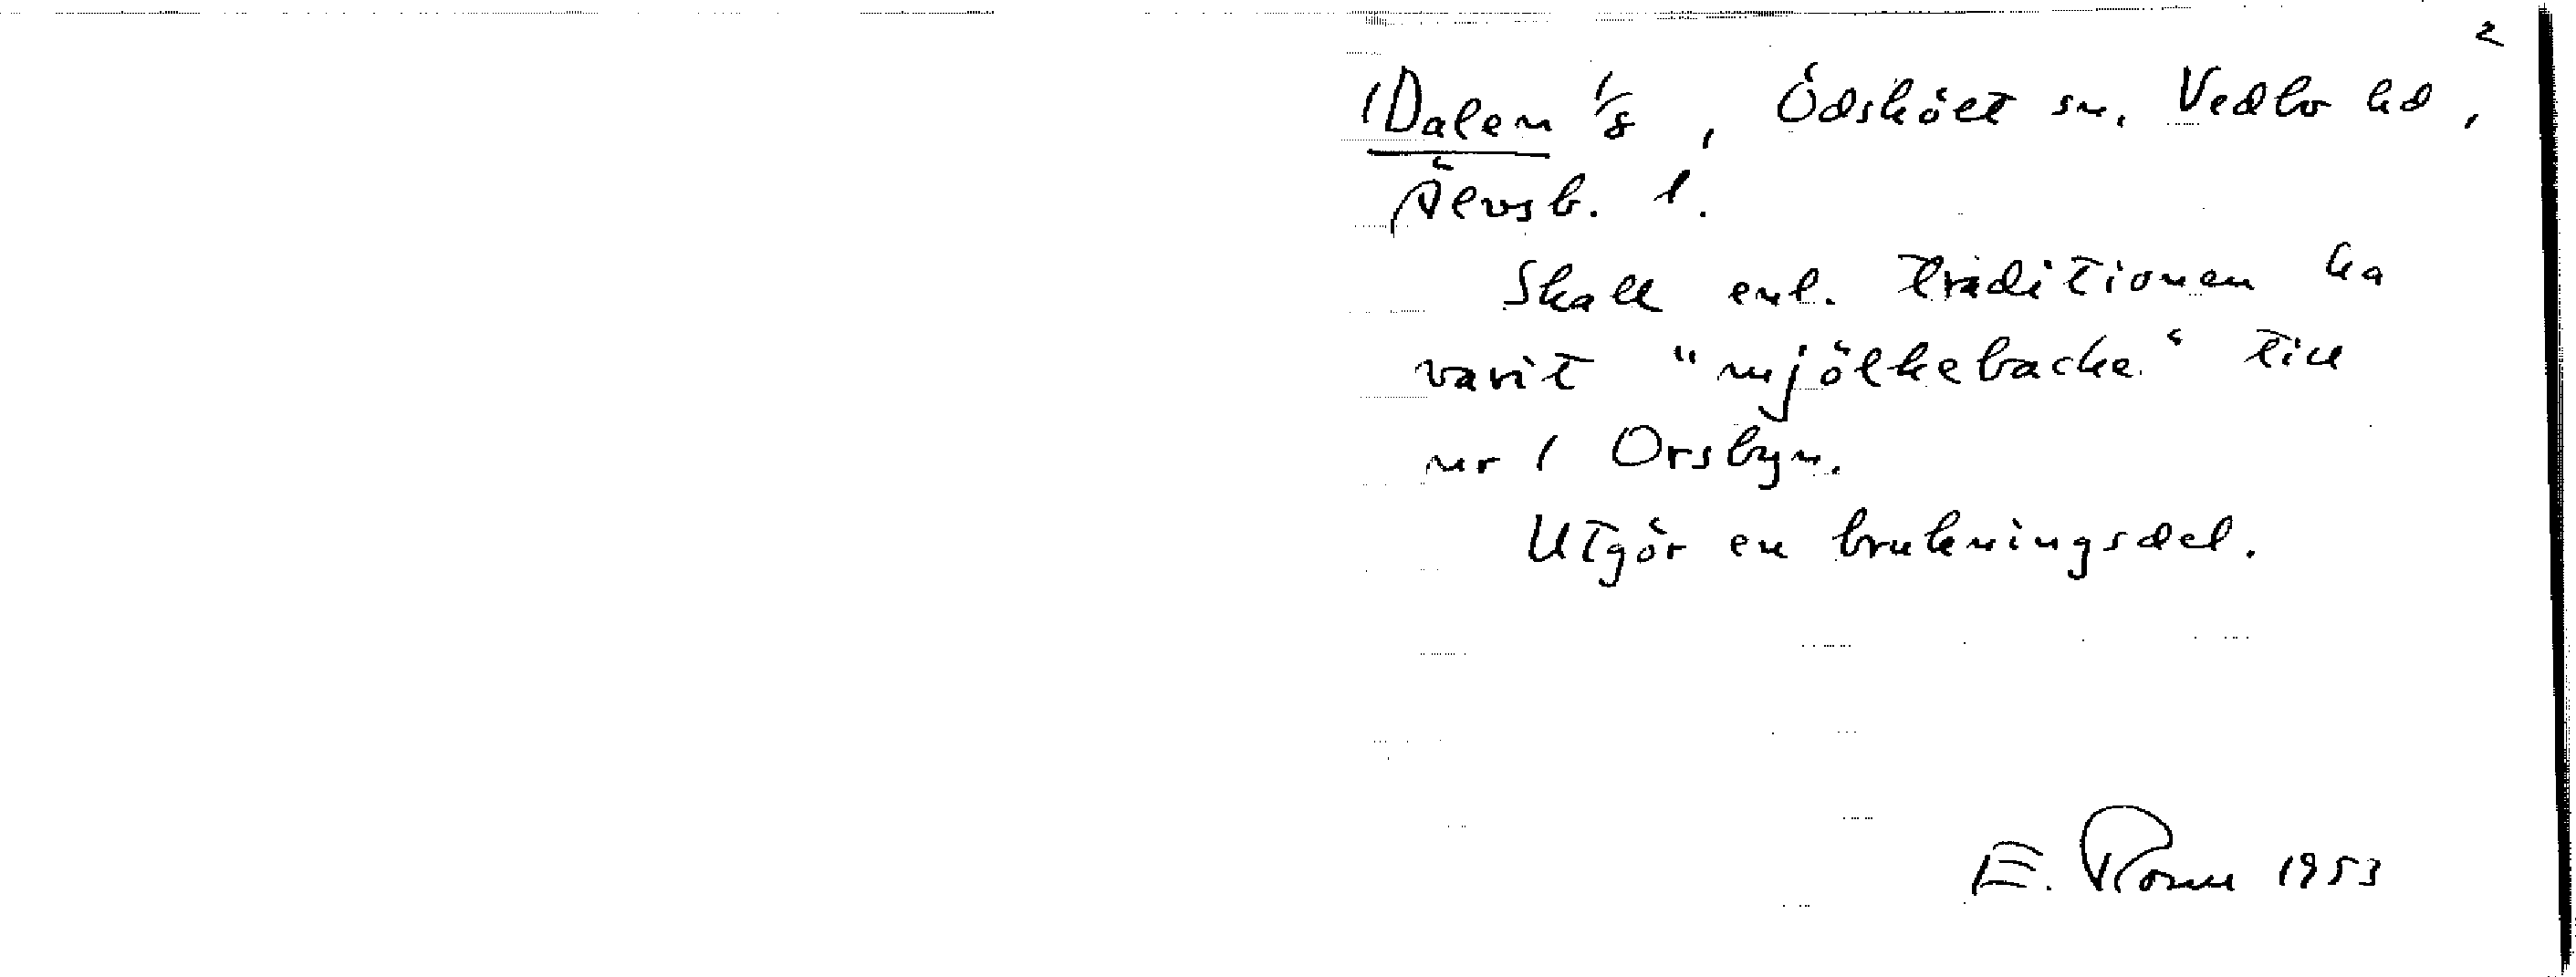 2
Dalen 1/8, Ödskölt sn. Vedbo hd,
Älvsb. l.
Skall enl. traditionen ha
varit "mjölkebacke" till
nr 1 Orsbyn.
Utgör en brukningsdel.
E. 1953